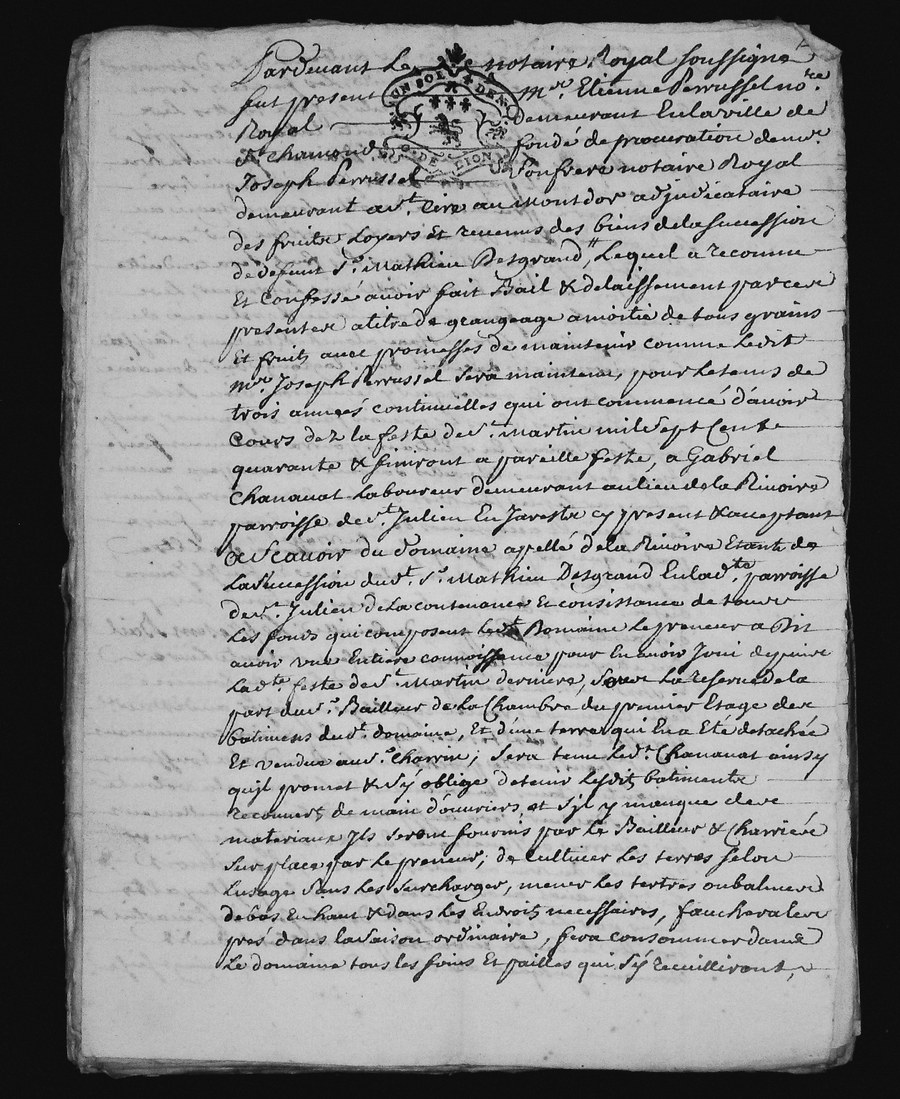 Pardevant Le notaire Royal soussigné
fut present mre. Etienne Perrussel nore.
Royal demeurant En la ville de
St. chamond fondé de procuration de mr.
Joseph Perrussel son frere notaire Royal
demeurant a st. Cire au montdor adjudicataire
des fruits Loyers et revenus des biens de la succession
de defunt sr. Mathieu Desgrand, Lequel a reconnu
Et confessé avoir fait Bail & delaissement par ces
presentes a titre de grangeage a moitié de tous grains
et fruits avec promesses de maintenir comme Ledit
mre. Joseph Perrussel sera maintenu, pour Le tems de
trois années continuelles qui ont commencé d'avoir
cours dez la feste de st. martin mil sept Cents
quarante & finiront a pareille feste, a Gabriel
Chanavat Laboureur demeurant au lieu de la Rivoire
parroisse de st. Julien En Jarestz cy present & acceptant
a scavoir du Domaine apellé de la Rivoire Etant de
La succession dudt. sr. Mathieu Desgrand En lad.te parroisse
de st. Julien de La contenance Et consistance de tous
Les fonds qui composent Ledt. Domaine Le preneur a Dit
avoir une Entiere connoissance pour En avoir Joui depuis
Ladte. feste de st. Martin derniere, sous La reserve de la
part dud. sr. Bailleur de La Chambre du premier Etage des
batimens dudt. domaine, Et d'une terre qui En a Eté detachée
Et vendue au sr. Charrin; sera tenu Ledt. Chanavat ainsy
qu'jl promet & s'y oblige detenir Lesdits batiments
recouverts de main d'ouvriers, et s'jl y manque des
materiaux Jls seront fournis par Le Bailleur & Charriés
sur place par Le preneur; de Cultiver Les terres selon
Lusage sans Les surcharger, mener Les tertres ou balmes
de bas En haut & dans Les Endroits necessaires, faucher les
prés dans la saison ordinaire, fera consommer dans
Le domaine tous les foins Et pailles qui s'y recuilliront,
UN SOL 4 DEN
G. DE LION